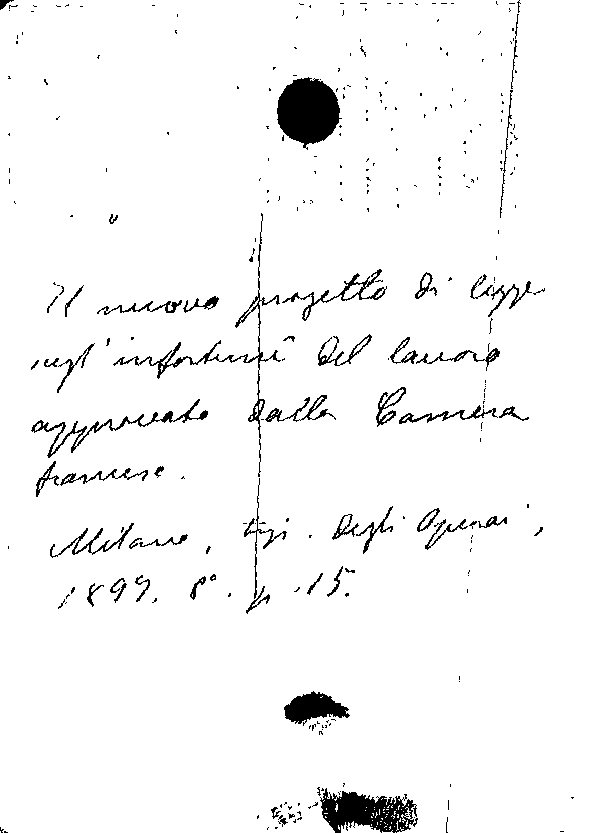 Il nuovo progetto di legge
sugl'infortunî del lavoro
approvato dalla Camera
francese.
Milano, tip. degli Operai,
1899. 8°. p. 15.